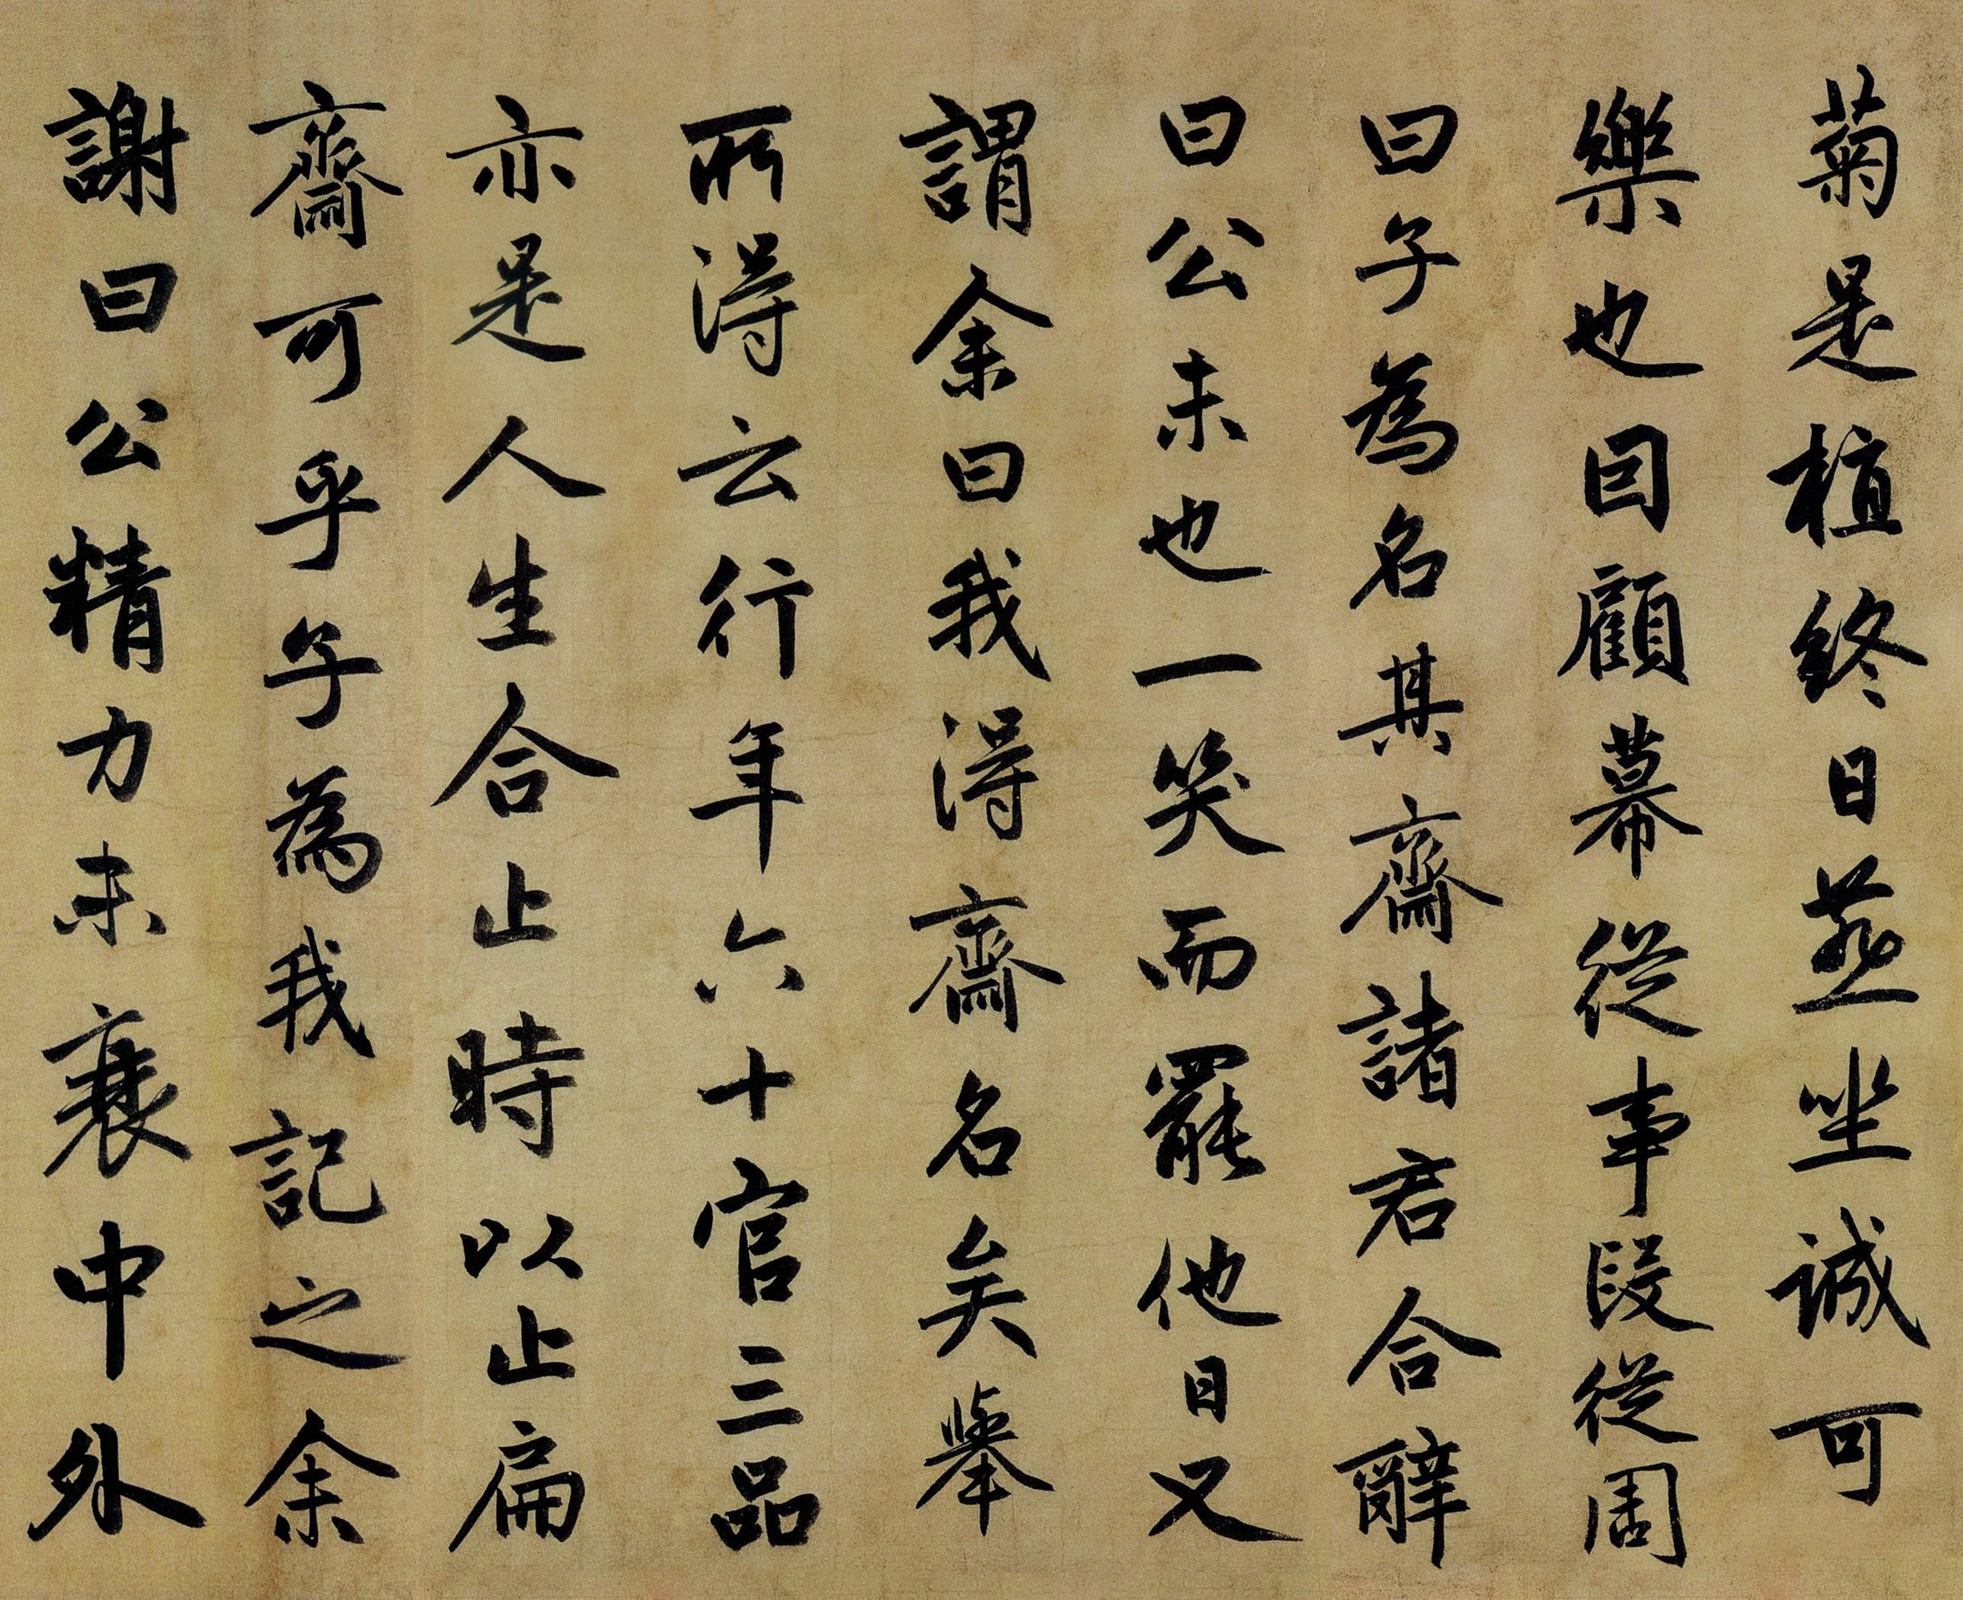 菊是植終日燕坐誠可
樂也因顧幕從事段從周
曰子為名其齋諸君合辭
曰公未也一笑而罷他日又
謂余曰我得齋名矣舉
所得云行年六十官三品
亦是人生合止時以止扁
齋可乎子為我記之余
謝曰公精力未衰中外